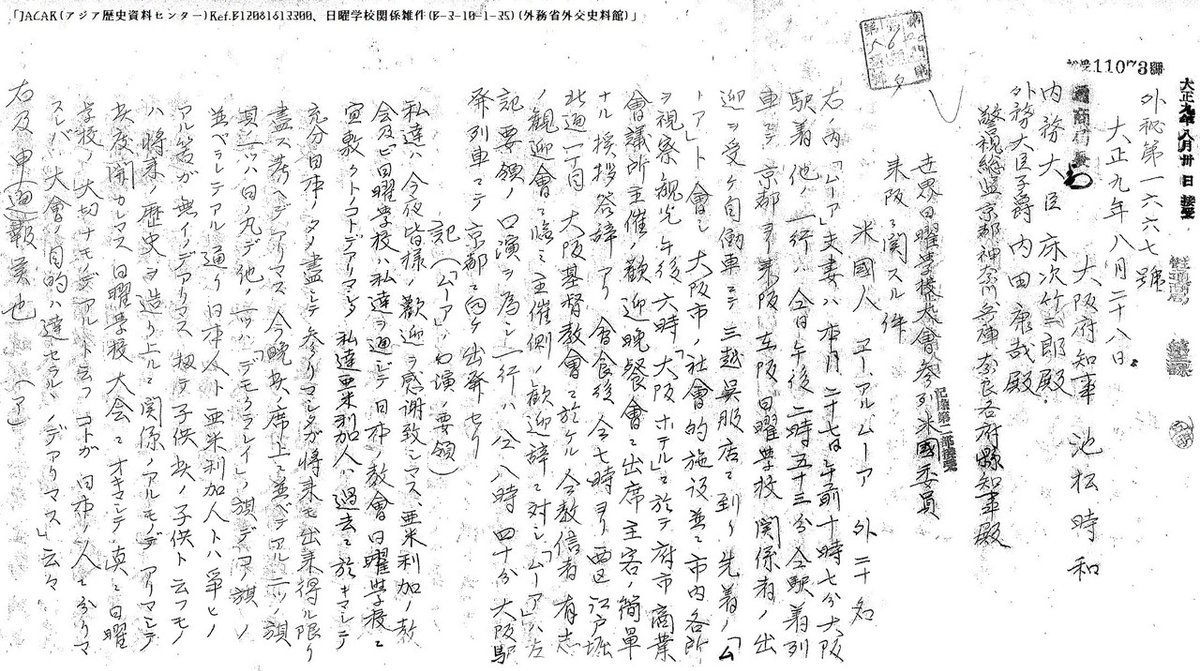 「JACAR(アジア歴史資料センター)Ref.B12081613300、日曜学校関係雑件(B-3-10-1-35)(外務省外交史料館)」
大正九年八月卅日接受
11073號
外秘第一六六七號
大正九年八月二十八日
大阪府知事 池松時和
内務大臣 床次竹二郎殿
外務大臣子爵 内田康哉殿
警視総監京都神奈川兵庫奈良各府縣知事殿
世界日曜学校大會参列米國委員
来阪ニ関スル件
米國人 エー、アルムーア 外二十名
右ノ内「ムーア」夫妻ハ本月二十七日午前十時七分大阪
駅着他ノ一行ハ仝日午後二時五十三分仝駅着列
車ニテ京都ヨリ来阪在阪日曜学校関係者ノ出
迎ヲ受ケ自働車ニテ三越呉服店ニ到リ先着ノ「ム
ーア」ト會シ大阪市ノ社會的施設並ニ市内各所
ヲ視察観光午後六時「大阪ホテル」ニ於テ府市商業
會議所主催ノ歓迎晩餐會ニ出席主客ノ簡単
ナル挨拶答辞アリ會食後仝七時ヨリ西区江戸堀
北通一丁目大阪基督教會ニ於ケル仝教信者有志
ノ観迎會ニ臨ミ主催側ノ歓迎辞ニ対シ「ムーア」ハ左
記要領ノ口演ヲ為シ一行ハ仝八時四十分大阪駅
発列車ニテ京都ニ向ケ出発セリ
記(「ムーア」ノ口演ノ要領)
私達ハ今夜皆様ノ歓迎ヲ感謝致シマス、亜米利加ノ教
会及ビ日曜学校ハ私達ヲ通シテ日本ノ教會日曜学校ニ
宜敷クトノコトデアリマシタ、私達亜米利加人ハ過去ニ於キマシテ
充分日本ノタメ盡シテ参リマシタガ将来モ出来得ル限リ
盡ス考ヘデアリマス、今晩此ノ席上ニ並ベテアル二ツノ旗
其一ツハ日ノ丸デ他ノ一ツハ「デモクラレイ」ノ旗デコノ旗ノ
並ベラレテアル通リ日本人ト亜米利加人トハ爭ヒノ
アル筈ガ無イノデアリマス扨テ子供此ノ子供ト云フモノ
ハ将来ノ歴史ヲ造リ上ルニ関係ノアルモノデアリマシテ
此度開カレマス日曜学校大会ニオキマシテ真ニ日曜
学校ノ大切ナモノデアルト云フコトガ日本ノ人ニ分リマ
スレバ大會ノ目的ハ達セラルヽノデアリマス」云々
右及申(通)報候也 (了)